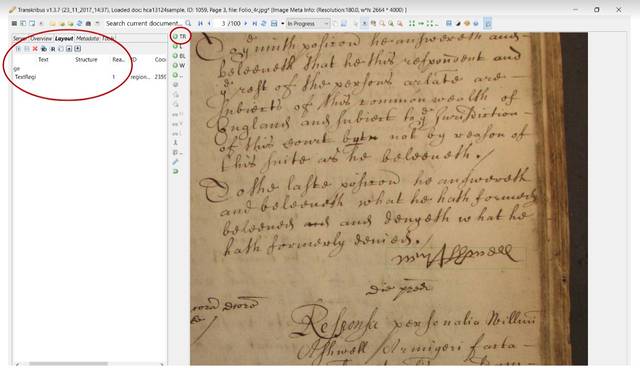 Transkribus v1.3.7 (23_11_2017_14:37), Loaded doc: hca13124sample, ID: 1059, Page 3, file: Folio_4r.jpg* [Image Meta Info: (Resolution:180.0, w*h: 2664 * 4000) ]
Search current document...
3 /100
In Progress
Server Overview Layout Metadata Tools
Text Structure Rea... ID Coor
ge
TextRegi 1 region... 2159
TR
L
BL
W
ninth position he answereth and
beleeveth that he this respondent and
ye rest of the persons arlate are
subiects of this common wealth of
England and subiect to ye Jurisdiction
of this Court but not by reason of
this suite as he beleeveth./
To the laste position he answereth
and beleeveth what he hath formerly
beleeved and and denyeth what he
hath formerly denied.
die pred
Responsa personalia Willimi
Ashwell Armigeri facta